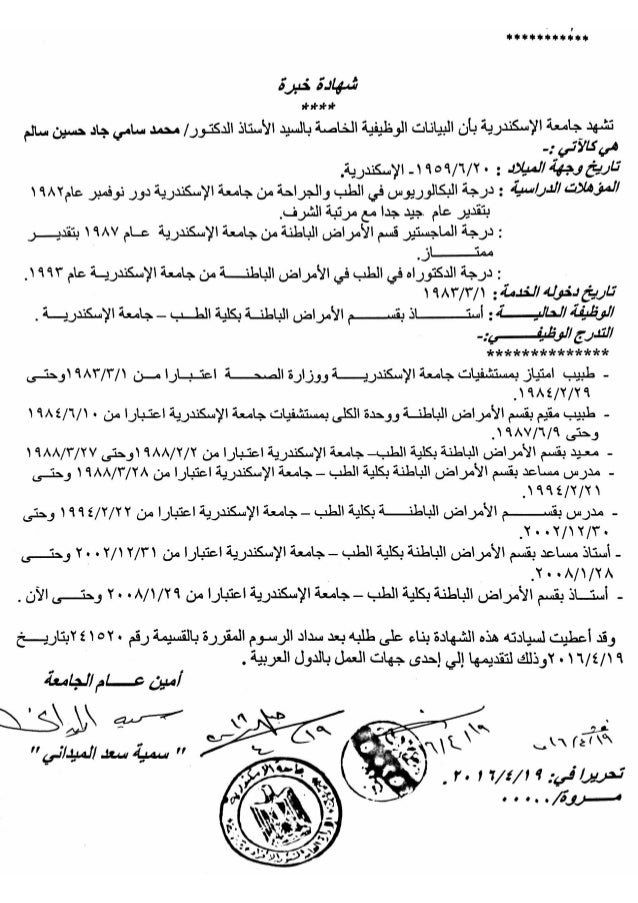 ***********
شهادة خبرة
****
تشهد جامعة الإسكندرية بأن البيانات الوظيفية الخاصة بالسيد الأستاذ الدكتور/ محمد سامي جاد حسين سالم
هي كالآتي :-
تاريخ وجهة الميلاد : ١٩٥٩/٦/٢٠- الإسكندرية.
المؤهلات الدراسية : درجة البكالوريوس في الطب والجراحة من جامعة الإسكندرية دور نوفمبر عام١٩٨٢
بتقدير عام جيد جدا مع مرتبة الشرف.
: درجة الماجستير قسم الأمراض الباطنة من جامعة الإسكندرية عام ١٩٨٧ بتقديـــر
ممتـــــــاز.
: درجة الدكتوراه في الطب في الأمراض الباطنـــة من جامعة الإسكندريـة عام ١٩٩٣.
تاريخ دخوله الخدمة : ١٩٨٣/٣/١
الوظيفة الحاليـــــة : أستــــــــاذ بقســــم الأمراض الباطنـة بكلية الطـب – جامعة الإسكندريـــة .
التدرج الوظيفـــــي:-
**************
- طبيب امتياز بمستشفيات جامعة الإسكندريـــة ووزارة الصحـــة اعتبـــارا مـــن ١٩٨٣/٣/١وحتى
١٩٨٤/٢/٢٩.
- طبيب مقيم بقسم الأمراض الباطنـة ووحدة الكلى بمستشفيات جامعة الإسكندرية اعتبـارا من ١٩٨٤/٦/١٠
وحتى ١٩٨٧/٦/٩.
- معيد بقسم الأمراض الباطنة بكلية الطب– جامعة الإسكندرية اعتبارا من ١٩٨٨/٢/٢وحتى ١٩٨٨/٣/٢٧
- مدرس مساعد بقسم الأمراض الباطنة بكلية الطب – جامعة الإسكندرية اعتبارا من ١٩٨٨/٣/٢٨ وحتـى
١٩٩٤/٢/٢١.
- مدرس بقســـــم الأمراض الباطنـــــة بكلية الطب – جامعة الإسكندرية اعتبارا من ١٩٩٤/٢/٢٢ وحتى
٢٠٠٢/١٢/٣٠.
- أستاذ مساعد بقسم الأمراض الباطنة بكلية الطب – جامعة الإسكندرية اعتبارا من ٢٠٠٢/١٢/٣١ وحتــى
٢٠٠٨/١/٢٨.
- أستـــاذ بقسم الأمراض الباطنة بكلية الطب – جامعة الإسكندرية اعتبارا من ٢٠٠٨/١/٢٩ وحتـــى الآن .
وقد أعطيت لسيادته هذه الشهادة بناء على طلبه بعد سداد الرسوم المقررة بالقسيمة رقم ٢٤١٥٢٠بتاريــخ
٢٠١٦/٤/١٩وذلك لتقديمها إلي إحدى جهات العمل بالدول العربية .
أمين عـــام الجامعة
" سمية سعد الميداني "
تحريرا في: ٢٠١٦/٤/١٩ .
مـــروة/ .....
جامعة الإسكندرية